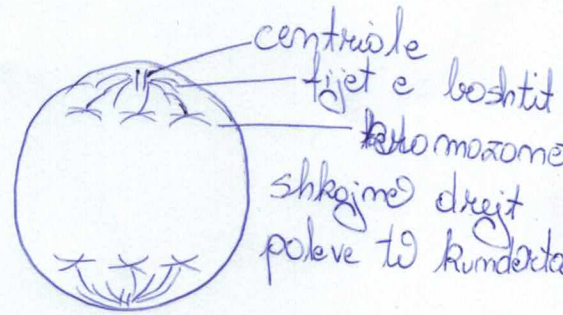 centriole
fijet e boshtit
kromozome
shkojnë drejt
poleve të kundërta